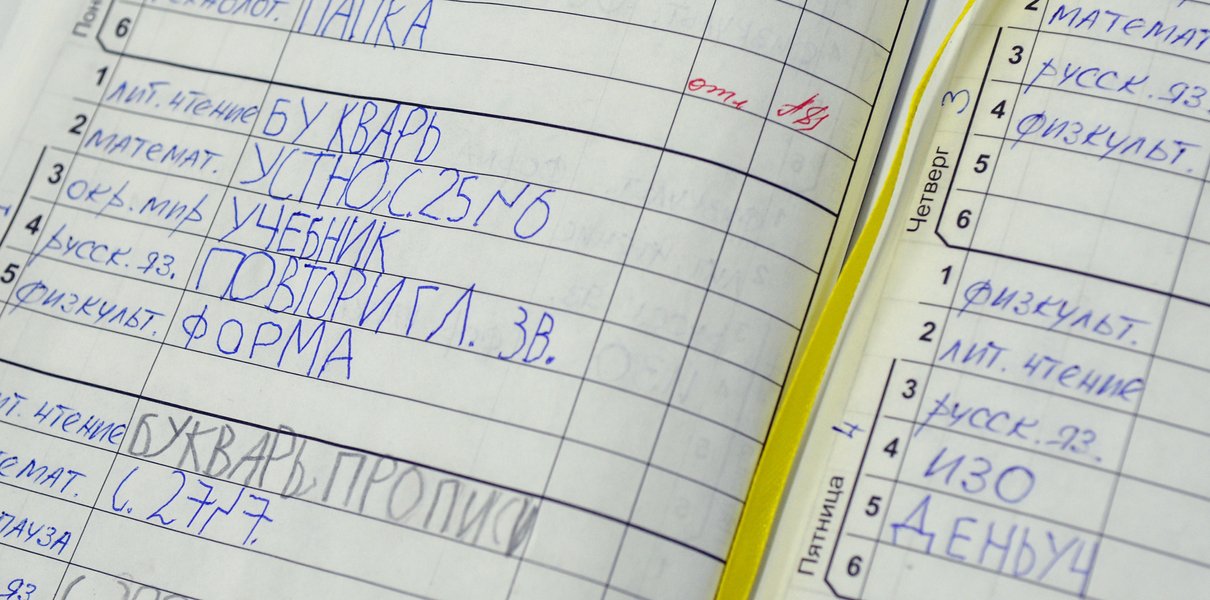 ПАПКА
6
1 ЛИТ. ЧТЕНИЕ БУКВАРЬ отл
2 МАТЕМАТ. УСТНО, С. 25 №6
3 ОКР. МИР УЧЕБНИК
4 РУССК. ЯЗ. ПОВТОРИ ГЛ. ЗВ.
5 ФИЗКУЛЬТ. ФОРМА
ЧТЕНИЕ БУКВАРЬ, ПРОПИСИ
С. 27 №7.
ПАУЗА
ЯЗ
2 МАТЕМАТ
3 РУССК. ЯЗ.
4 ФИЗКУЛЬТ.
5
6
Четверг 3
1 ФИЗКУЛЬТ.
2 ЛИТ. ЧТЕНИЕ
3 РУССК. ЯЗ.
4 ИЗО
5 ДЕНЬ УЧ
6
Пятница 4